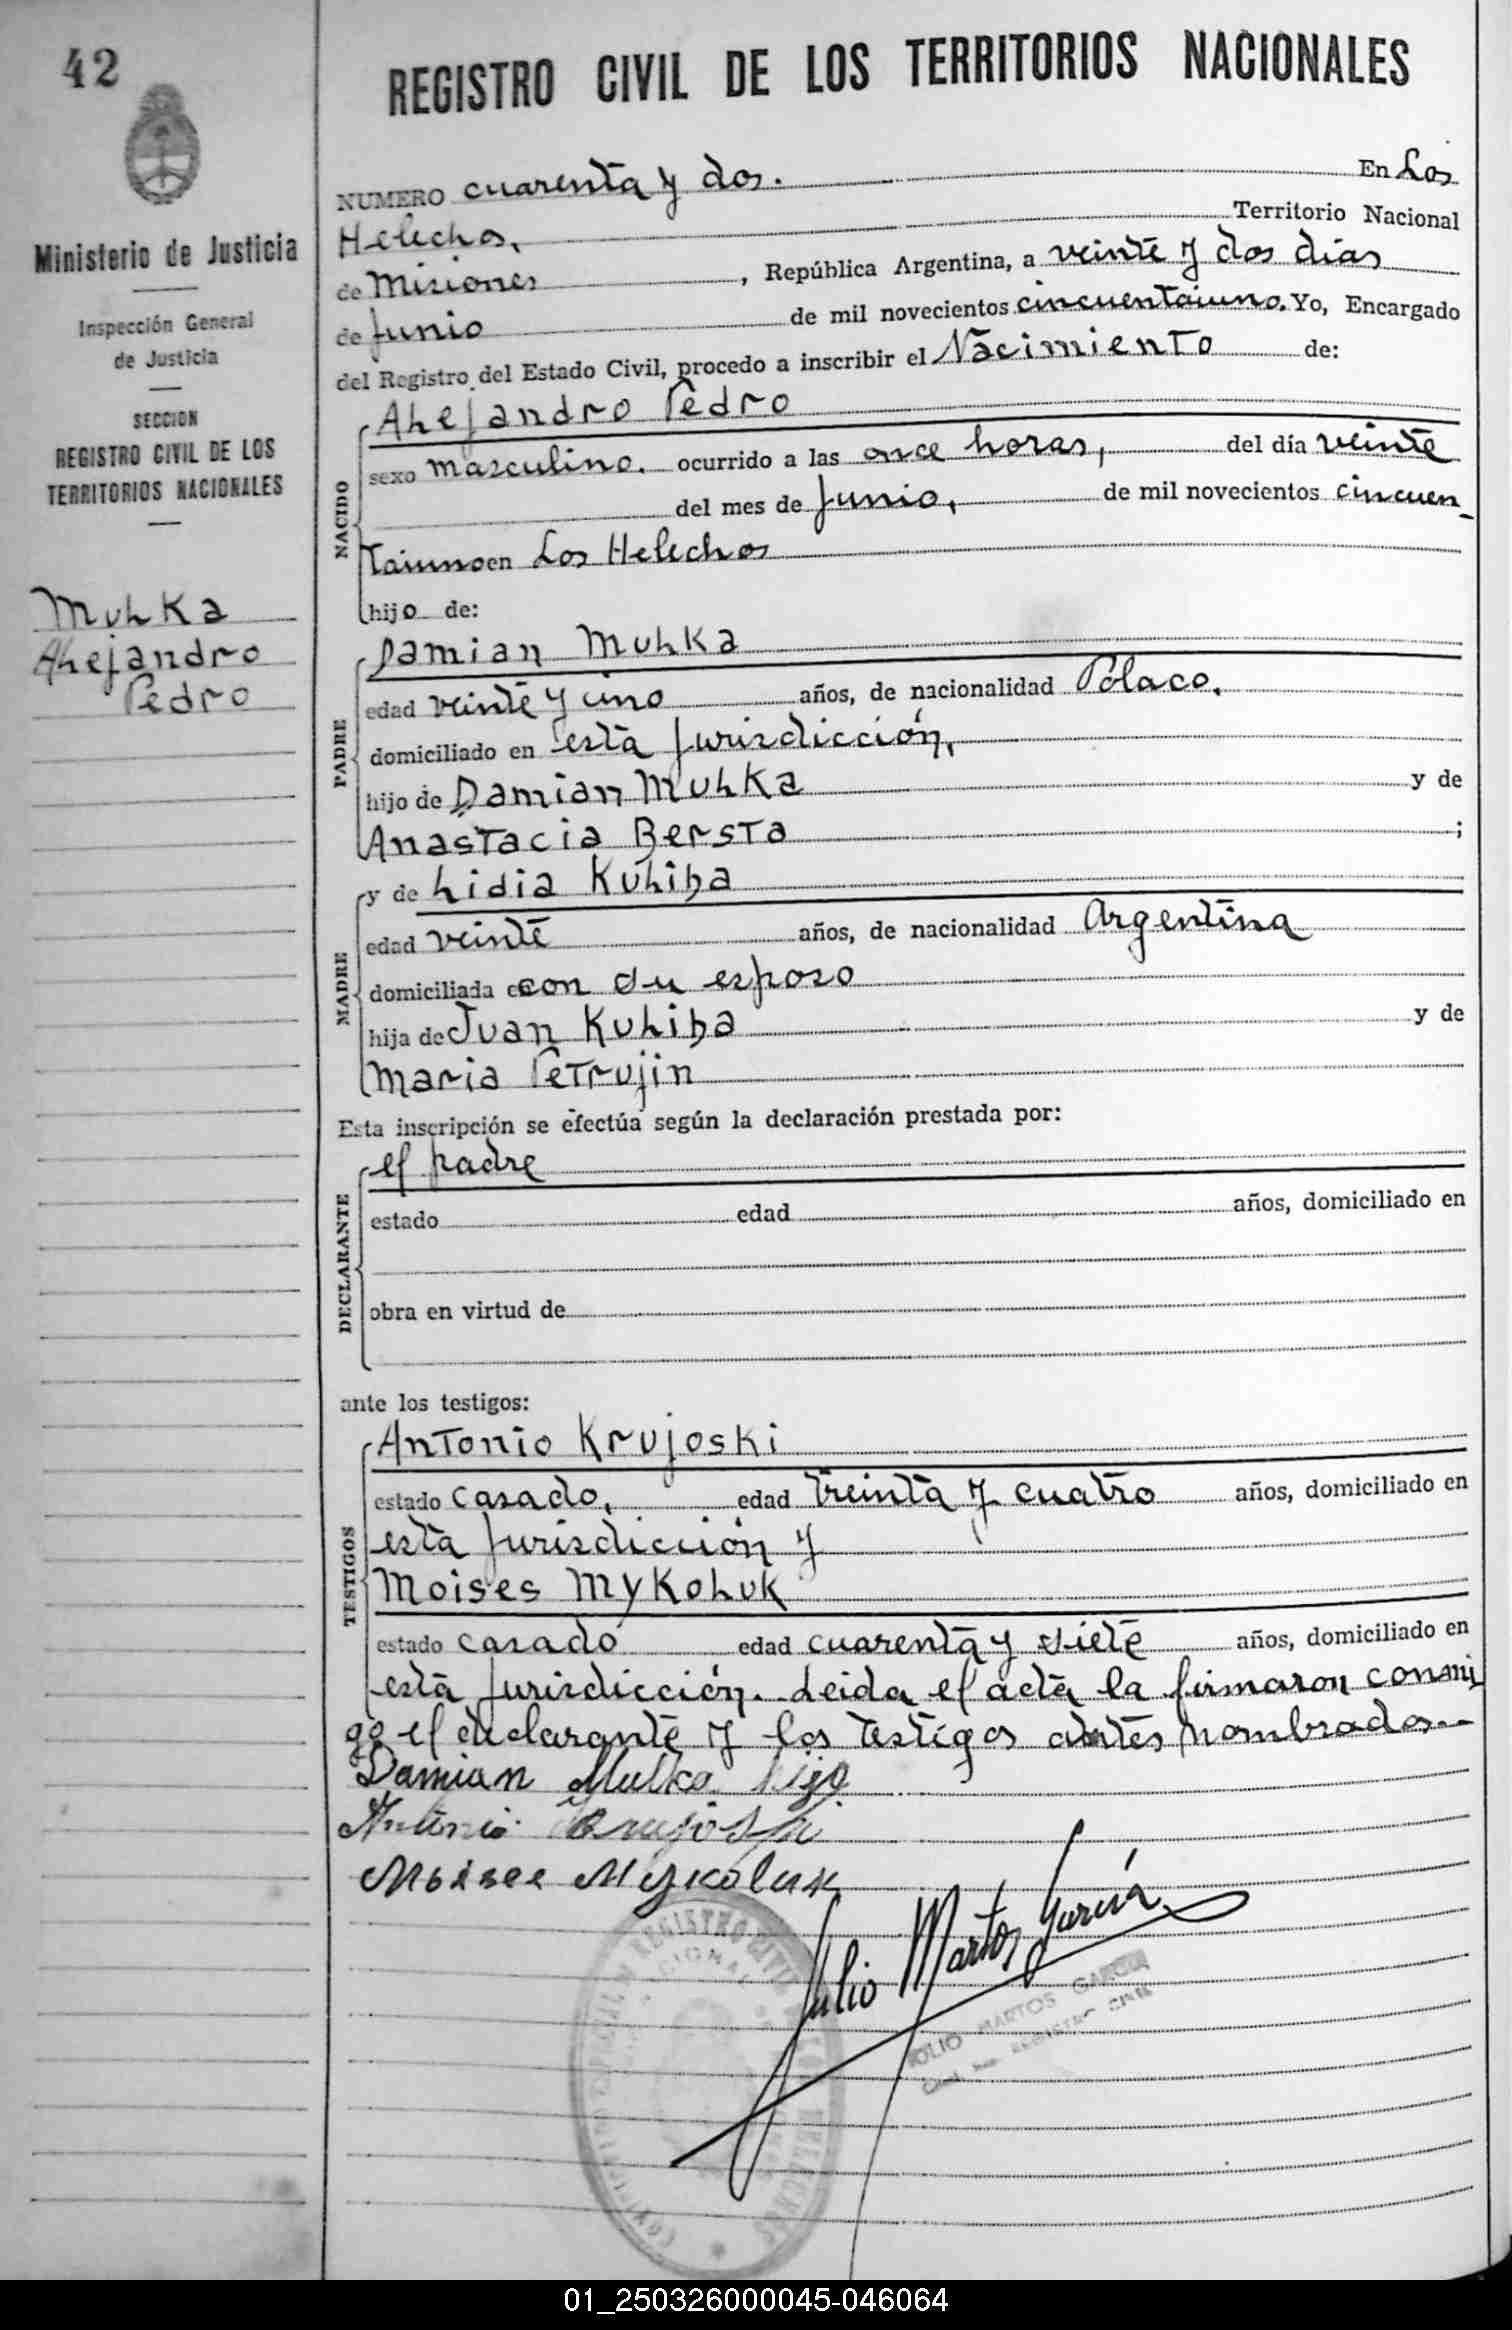 42
Ministerio de Justicia
Inspección General
de Justicia
SECCION
REGISTRO CIVIL DE LOS
TERRITORIOS NACIONALES
Mulka
Alejandro
Pedro
REGISTRO CIVIL DE LOS TERRITORIOS NACIONALES
NUMERO cuarenta y dos. En Los
Helechos, Territorio Nacional
de Misiones, República Argentina, a veinte y dos dias
de Junio de mil novecientos cincuentaiuno. Yo, Encargado
del Registro del Estado Civil, procedo a inscribir el Nacimiento de:
Alejandro Pedro
NACIDO
sexo masculino. ocurrido a las once horas, del día veinte
del mes de Junio, de mil novecientos cincuen_
taiuno en Los Helechos
hijo de:
Damian Mulka
PADRE
edad veinte y uno años, de nacionalidad Polaco.
domiciliado en esta Jurisdicción,
hijo de Damian Mulka y de
Anastacia Bersta ;
y de Lidia Kuliba
MADRE
edad veinte años, de nacionalidad Argentina
domiciliada con su esposo
hija de Juan Kuliba y de
Maria Petrujin
Esta inscripción se efectúa según la declaración prestada por:
el padre
DECLARANTE
estado edad años, domiciliado en
obra en virtud de
ante los testigos:
Antonio Krujoski
TESTIGOS
estado casado, edad treinta y cuatro años, domiciliado en
esta Jurisdicción y
Moises Mykoluk
estado casado edad cuarenta y siete años, domiciliado en
esta Jurisdicción. Leida el acta la firmaron conmi
go el declarante y los testigos antes nombrados.--
Damian Mulka hijo
Antonio Krujoski
Moises Mykoluk
Julio Martos García
JULIO MARTOS GARCIA
REGISTRO CIVIL
01_250326000045-046064